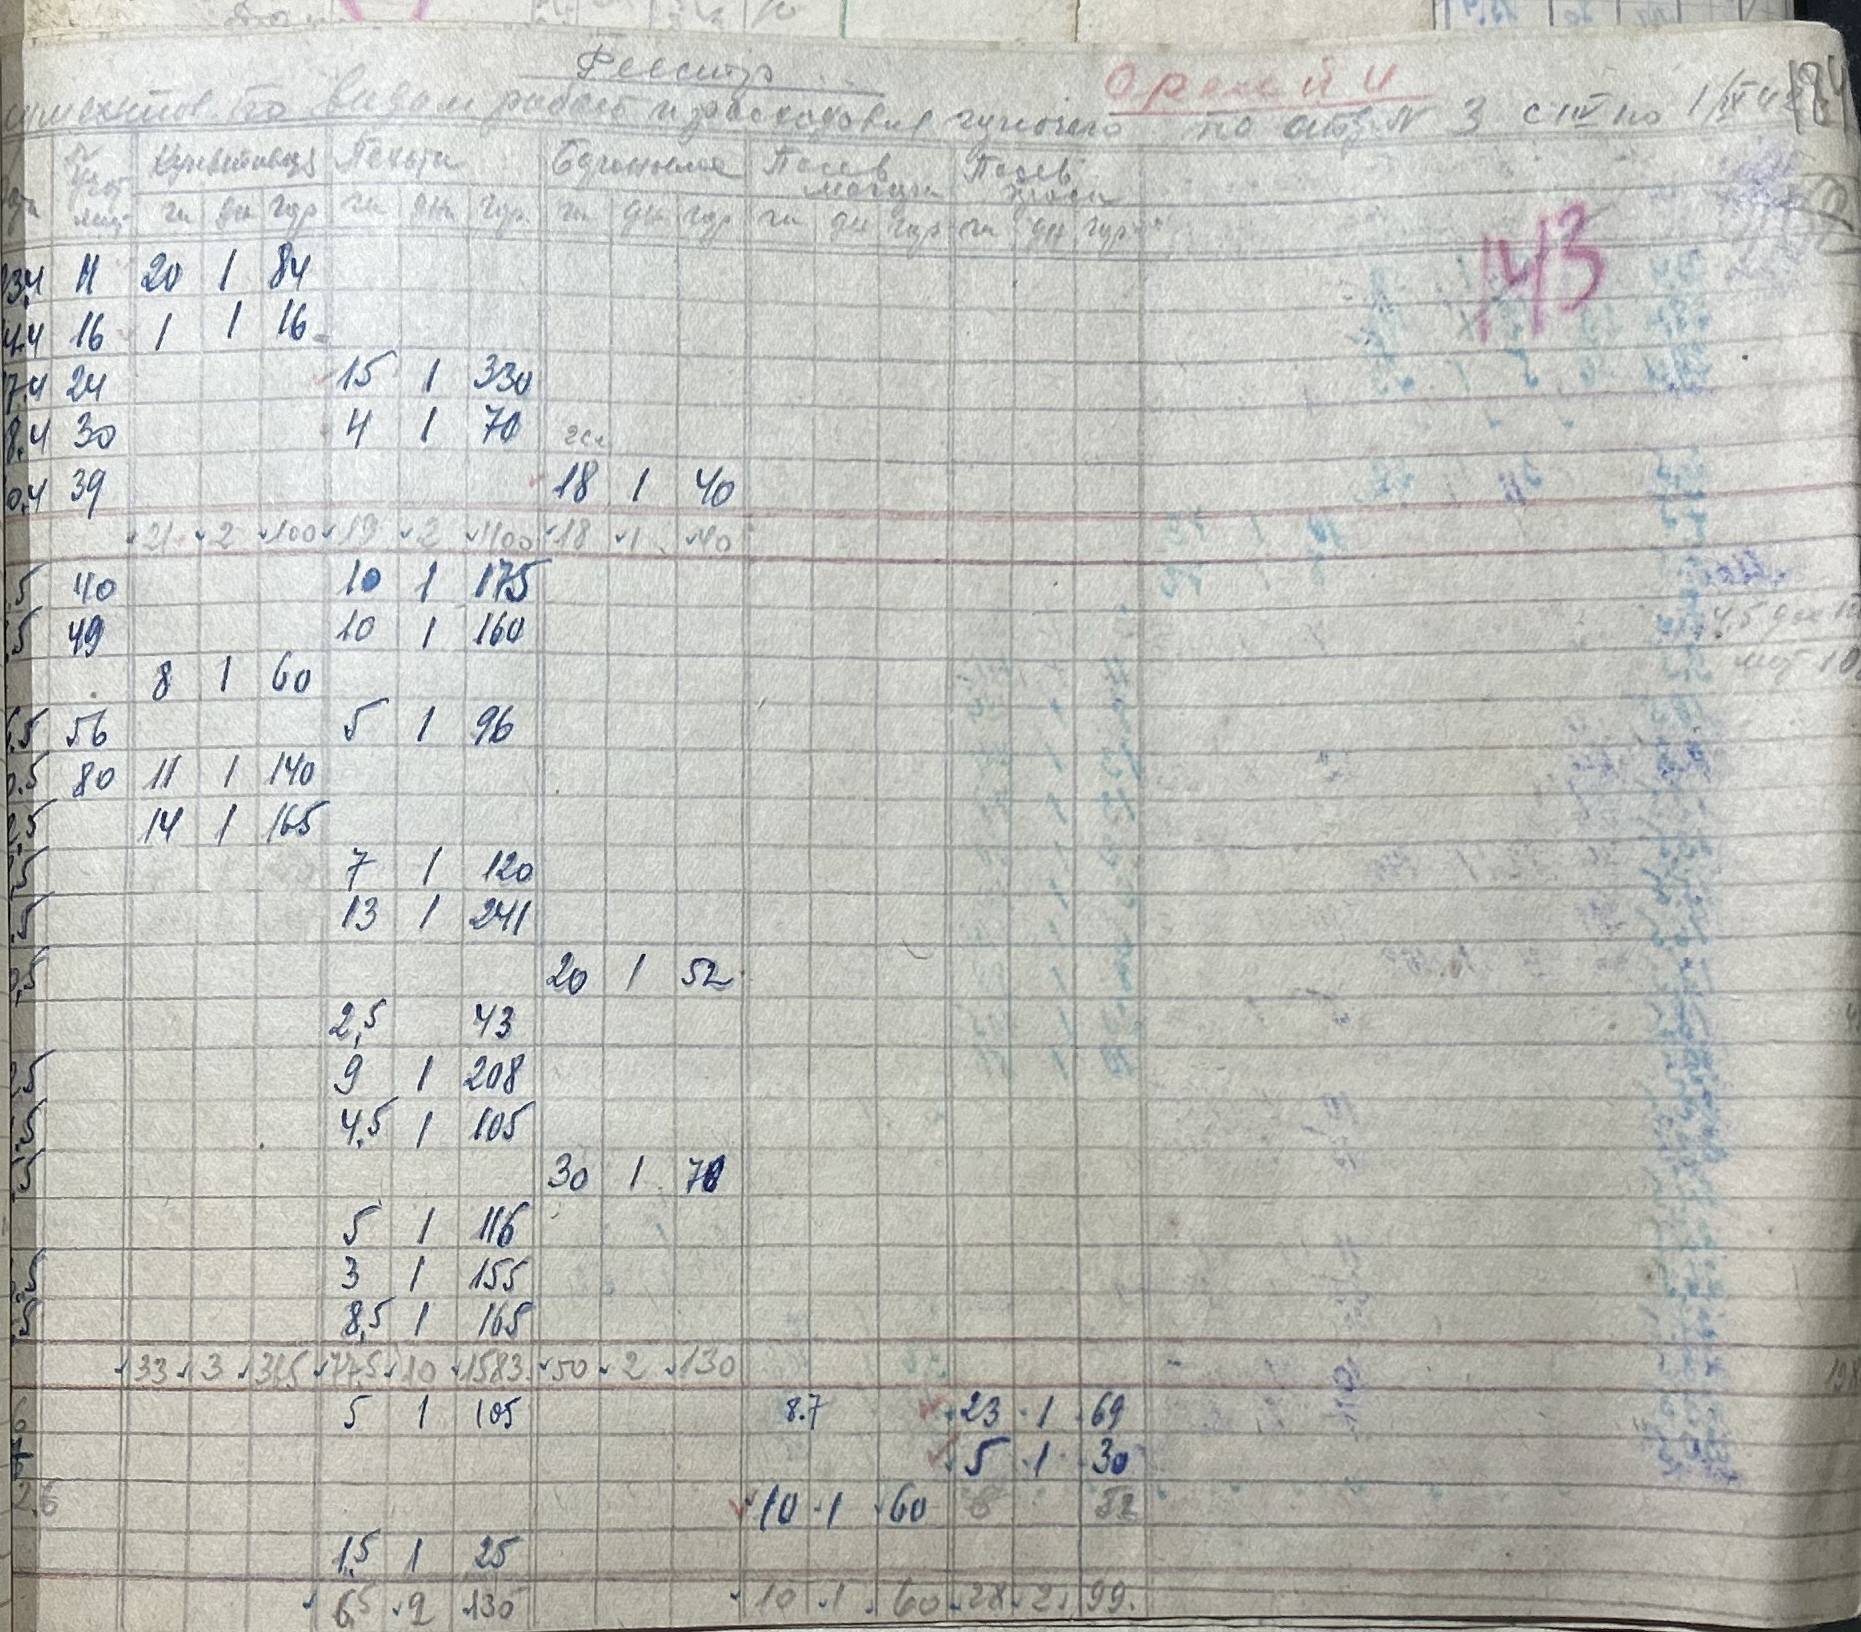 Реестр
по видам работ и расходов горючего по отд. № 3 с IV по 1/IX 4
Культивация Пахота Боронование Посев Посев
га дн гор га дн гор га дн гор га дн гор га дн гор
143
3.4 11 20 1 84
4.4 16 1 1 16
7.4 24 15 1 330
8.4 30 4 1 70
0.4 39 18 1 40
21 2 100 19 2 400 18 1 40
5 40 10 1 175
5 49 10 1 160
8 1 60
5 56 5 1 96
0.5 80 11 1 140
5 14 1 165
5 7 1 120
5 13 1 241
5 20 1 52
2,5 43
5 9 1 208
5 4,5 1 105
5 30 1 78
5 1 116
5 3 1 155
5 8,5 1 165
133 3 315 77,5 10 1583 50 2 130
6 5 1 105 8.7 23 1 69
5 1 30
2.6 10 1 60 8 52
1,5 1 25
6,5 2 130 10 1 60 28 2 99